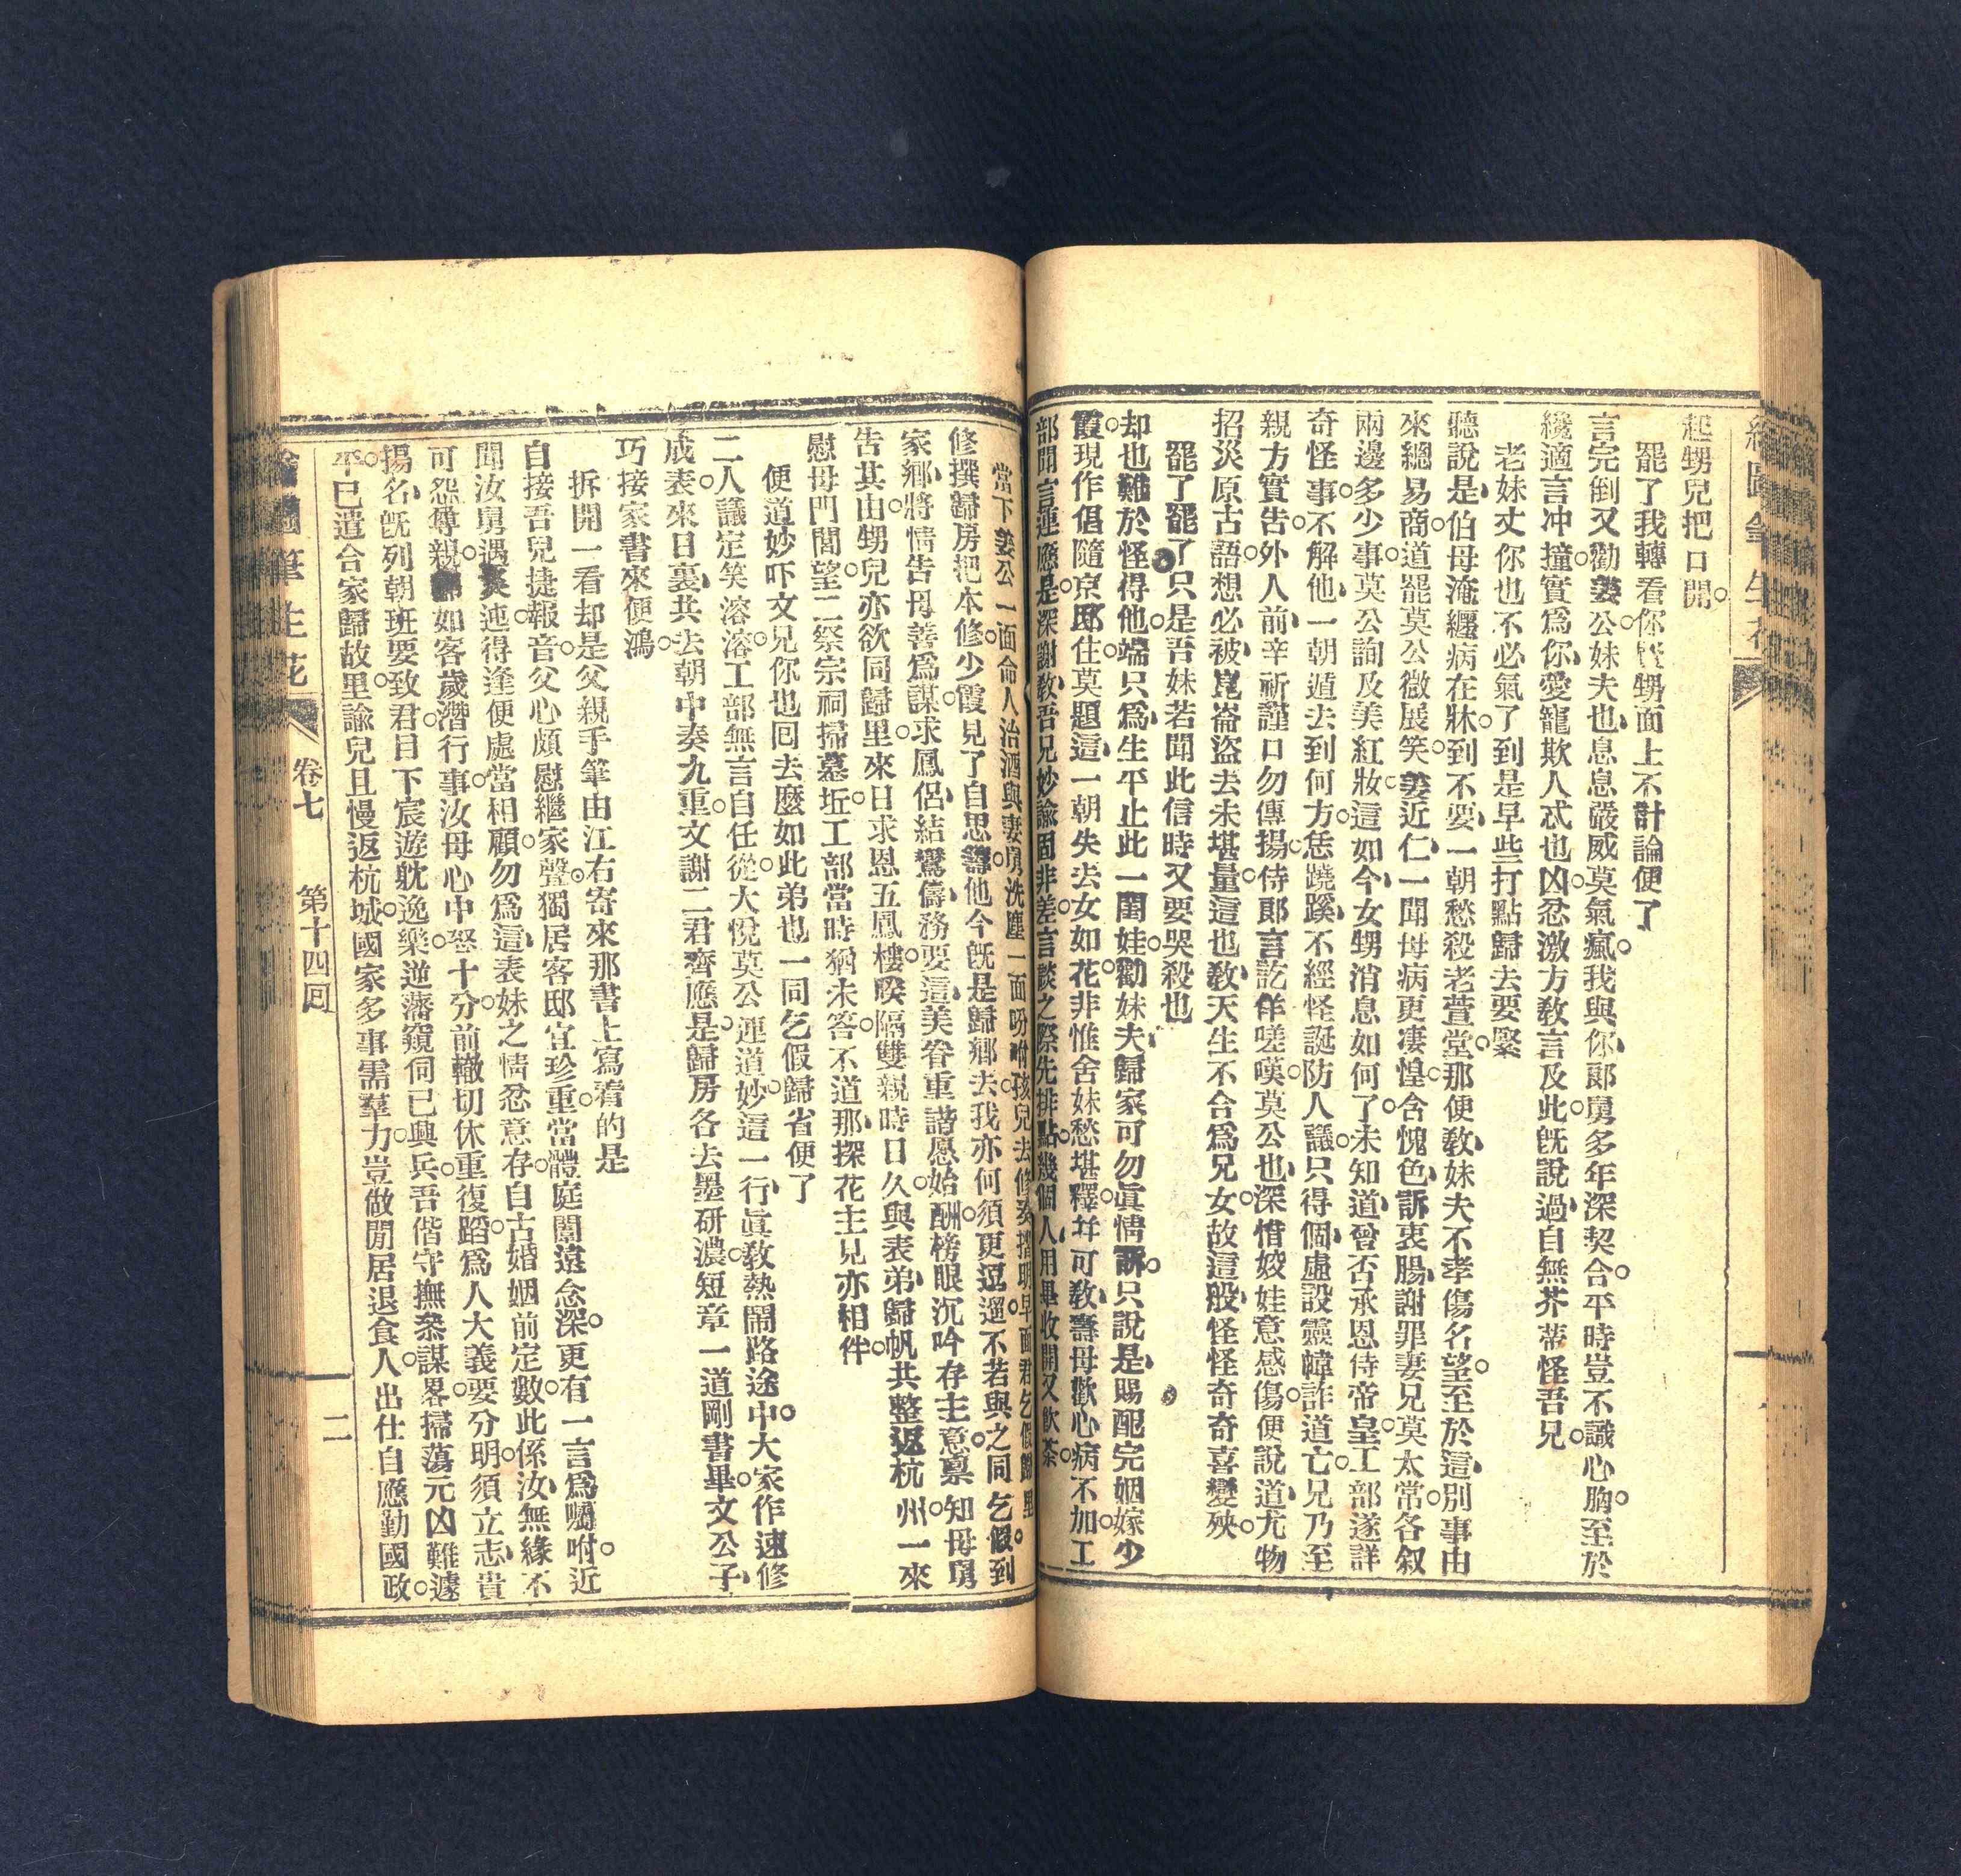 繪圖筆生花
起甥兒把口開。
罷了我轉看你甥面上不計論便了
言完倒又勸姜公。妹夫也、息息嚴威莫氣瘋。我與你、郎舅多年深契合。平時豈不識心胸。至於
纔適言冲撞、實爲你、愛寵欺人忒也凶。忿激方教言及此、既說過、自無芥蒂怪吾兄。
老妹丈你也不必氣了到是早些打點歸去要緊
聽說是、伯母淹纒病在牀。到不要、一朝愁殺老萱堂。那便教、妹夫不孝傷名望。至於這、別事由
來總易商。道罷莫公微展笑。姜近仁、一聞母病更凄惶。含愧色、訴衷腸、謝罪妻兄莫太常。各叙
兩邊多少事。莫公詢及美紅妝。這如今、女甥消息如何了。未知道、曾否承恩侍帝皇。工部遂詳
奇怪事。不解他、一朝遁去到何方。恁蹺蹊、不經怪誕防人議。只得個、虛設靈幃詐道亡。兄乃至
親方實告。外人前、辛祈謹口勿傳揚。侍郎言訖佯嗟嘆。莫公也、深惜姣娃意感傷。便說道、尤物
招災原古語。想必被、崑崙盜去未堪量。這也教、天生不合爲兄女。故這般、怪怪奇奇喜變殃。
罷了罷了只是吾妹若聞此信時又要哭殺也
却也難於怪得他。端只爲、生平止此一閨娃。勸妹夫、歸家可勿眞情訴。只說是、賜配完姻嫁少
霞。現作倡隨京邸住。莫題這、一朝失去女如花。非惟舍妹愁堪釋。幷可教、壽母歡心病不加。工
部聞言連應是。深謝教、吾兄妙諭固非差。言談之際先排點。幾個人、用畢收開又飲茶。
當下姜公一面命人治酒與妻舅洗塵一面吩咐孩兒去修奏摺明早面君乞假歸里。
修撰歸房把本修。少霞見了自思籌。他今既是歸鄉去。我亦何須更逗遛。不若與之同乞假。到
家鄉、將情告母善爲謀。求鳳侶、結鸞儔、務要這、美眷重諧愿始酬。榜眼沉吟存主意。禀知母舅
告其由。甥兒亦欲同歸里。來日求恩五鳳樓。睽隔雙親時日久。與表弟、歸帆共整返杭州。一來
慰母門閭望。二祭宗祠掃墓坵。工部當時猶未答。不道那、探花主見亦相侔。
便道妙吓文兄你也回去麼如此弟也一同乞假歸省便了
二人議定笑溶溶。工部無言自任從。大悅莫公連道妙。這一行、眞教熱鬧路途中。大家作速修
成表。來日裏、共去朝中奏九重。文謝二君齊應是。歸房各去墨研濃。短章一道剛書畢。文公子、
巧接家書來便鴻。
拆開一看却是父親手筆由江右寄來那書上寫着的是
自接吾兒捷報音。父心頗慰繼家聲。獨居客邸宜珍重。當體庭闈遠念深。更有一言爲囑咐。近
聞汝舅遇迍邅。得逢便處當相顧。勿爲這、表妹之情忿意存。自古婚姻前定數。此係汝、無緣不
可怨尊親。如客歲潛行事。汝母心中怒十分。前轍切休重復蹈。爲人大義要分明。須立志、貴
揚名、既列朝班要致君。目下宸遊躭逸樂。逆藩窺伺已興兵。吾偕守撫叅謀畧。掃蕩元凶難遽
平。已遣合家歸故里。諭兒且慢返杭城。國家多事需羣力。豈做閒居退食人。出仕自應勤國政。
繪圖筆生花
卷七
第十四回
二